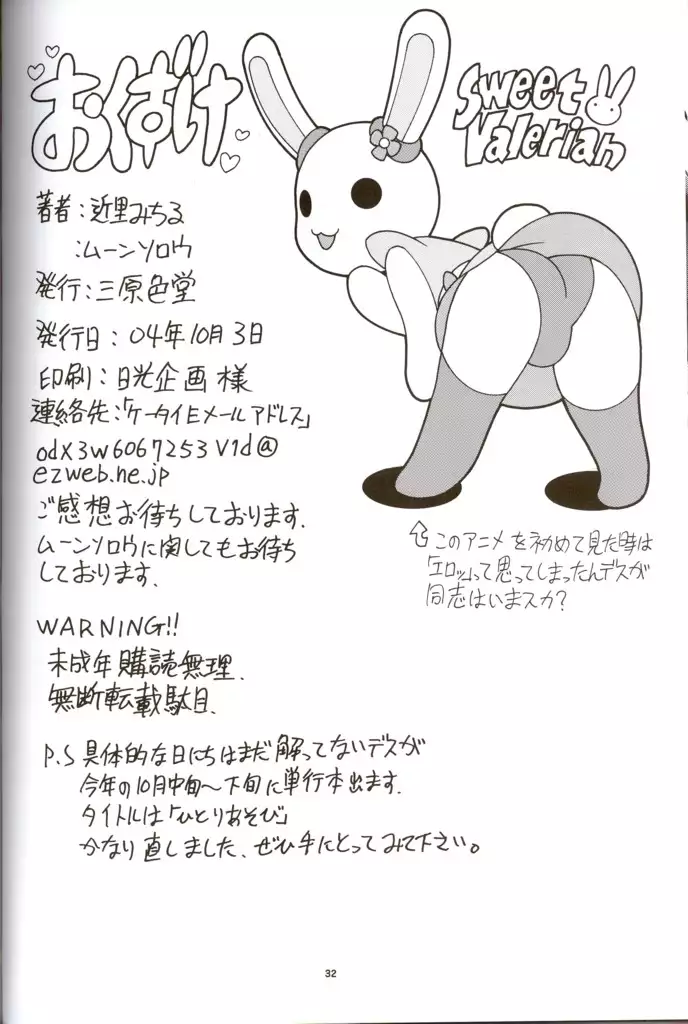 おくばけ
Sweet
Valerian
著者：近里みちる
：ムーンソロウ
発行：三原色堂
発行日：04年10月3日
印刷：日光企画様
連絡先：「ケータイEメールアドレス」
odx3w6067253v1d@
ezweb.ne.jp
ご感想お待ちしております.
ムーンソロウに関してもお待ち
しております.
⇧このアニメを初めて見た時は
「エロッ」って思ってしまったんデスが
同志はいまスか？
WARNING!!
未成年購読無理.
無断転載駄目.
P.S 具体的な日にちはまだ解ってないデスが
今年の10月中旬～下旬に単行本出ます.
タイトルは「ひとりあそび」
かなり直しました、ぜひ手にとってみて下さい。
32